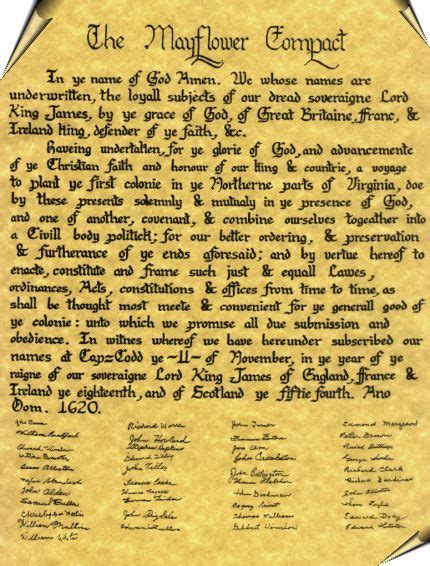 The Mayflower Compact
In ye name of God Amen. We whose names are
underwritten, the loyall subjects of our dread soveraigne Lord
King James, by ye grace of God, of Great Britaine, ffranc, &
Ireland king, defender of ye faith, &c.
Haveing undertaken, for ye glorie of God, and advancemente
of ye Christian faith and honour of our king & countrie, a voyage
to plant ye first colonie in ye Northerne parts of Virginia, doe
by these presents solemnly & mutualy in ye presence of God,
and one of another, covenant, & combine ourselves togeather into
a Civill body politick; for our better ordering, & preservation
& furtherance of ye ends aforesaid; and by vertue hereof to
enacte, constitute and frame such just & equall Lawes,
ordinances, Acts, constitutions & offices from time to time, as
shall be thought most meete & convenient for ye generall good of
ye colonie: unto which we promise all due submission and
obedience. In witnes whereof we have hereunder subscribed our
names at Cap=Codd ye ~11~ of November, in ye year of ye
raigne of our soveraigne Lord King James of England, ffrance &
Ireland ye eighteenth, and of Scotland ye fiftie fourth. Ano
Dom. 1620.
William Bradford
Edward Winslow
Isaac Allerton
John Alden
Samuel Fuller
William Mullins
William White
Richard Warren
John Howland
Stephen Hopkins
Edward Tilley
John Tilley
Francis Cooke
Thomas Rogers
Thomas Tinker
John Rigdale
John Turner
Francis Eaton
John Crackston
John Billington
Moses Fletcher
John Goodman
Degory Priest
Thomas Williams
Gilbert Winslow
Edmund Margeson
Peter Brown
George Soule
Richard Clark
Richard Gardiner
John Allerton
Edward Doty